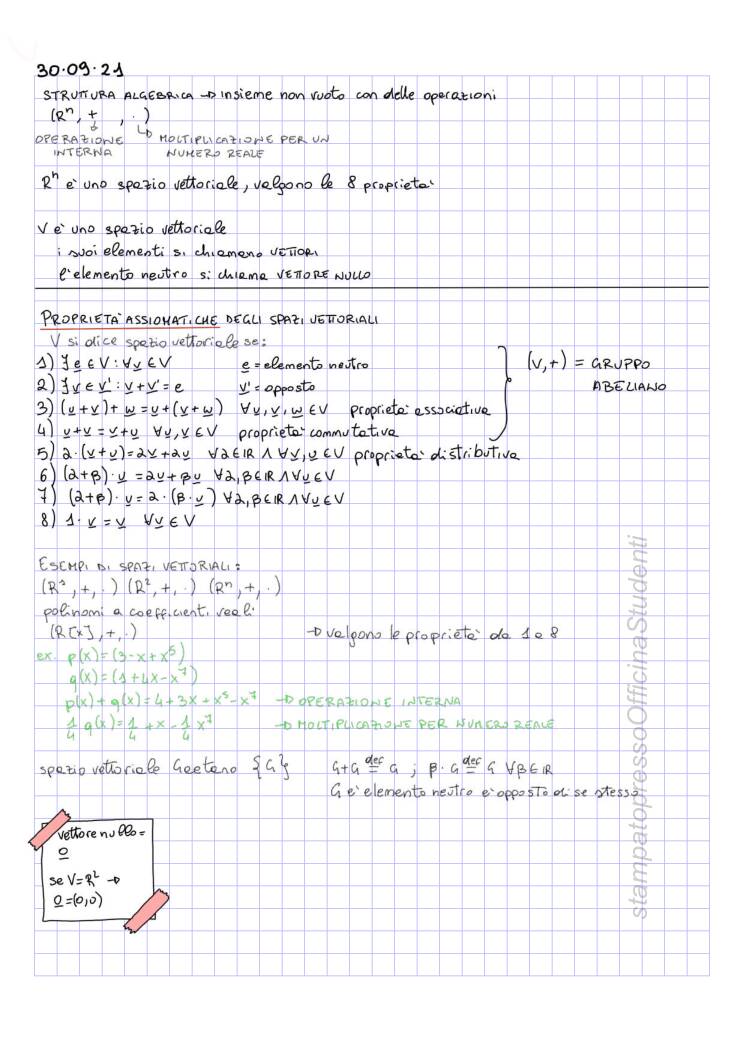 30.09.21
STRUTTURA ALGEBRICA → insieme non vuoto con delle operazioni
(Rⁿ, + , ·)
OPERAZIONE INTERNA
↳ MOLTIPLICAZIONE PER UN NUMERO REALE
Rⁿ e' uno spazio vettoriale, valgono le 8 proprieta'
V e' uno spazio vettoriale
i suoi elementi si chiamano VETTORI
l'elemento neutro si chiama VETTORE NULLO
PROPRIETA' ASSIOMATICHE DEGLI SPAZI VETTORIALI
V si dice spazio vettoriale se:
1) ∃ e ∈ V : ∀v ∈ V e = elemento neutro
2) ∃ v ∈ v' : v + v' = e v' = opposto
3) (u+v) + w = u + (v+w) ∀u, v, w ∈ V proprieta' associativa
4) u+v = v+u ∀u, v ∈ V proprieta' commutativa
(V,+) = GRUPPO ABELIANO
5) α·(v+u) = αv + αu ∀α∈IR ∧ ∀v, u ∈ V proprieta' distributiva
6) (α+β)·u = αu + βu ∀α,β∈IR ∧ ∀u ∈ V
7) (α+β)·u = α·(β·u) ∀α,β∈IR ∧ ∀u ∈ V
8) 1·v = v ∀v ∈ V
ESEMPI DI SPAZI VETTORIALI:
(R³, +, ·) (R², +, ·) (Rⁿ, +, ·)
polinomi a coefficienti reali
(R[x], +, ·) → valgono le proprieta' da 1 a 8
ex. p(x) = (3-x+x⁵)
q(x) = (1+4x-x⁷)
p(x)+q(x) = 4+3x+x⁵-x⁷ → OPERAZIONE INTERNA
1/4 q(x) = 1/4 + x - 1/4 x⁷ → MOLTIPLICAZIONE PER NUMERO REALE
spazio vettoriale Gaetano {G} G+G def= G ; β·G def= G ∀β∈IR
G e' elemento neutro e opposto di se stesso
vettore nullo =
0
se V=R² →
0=(0,0)
stampatopressoOfficinaStudenti